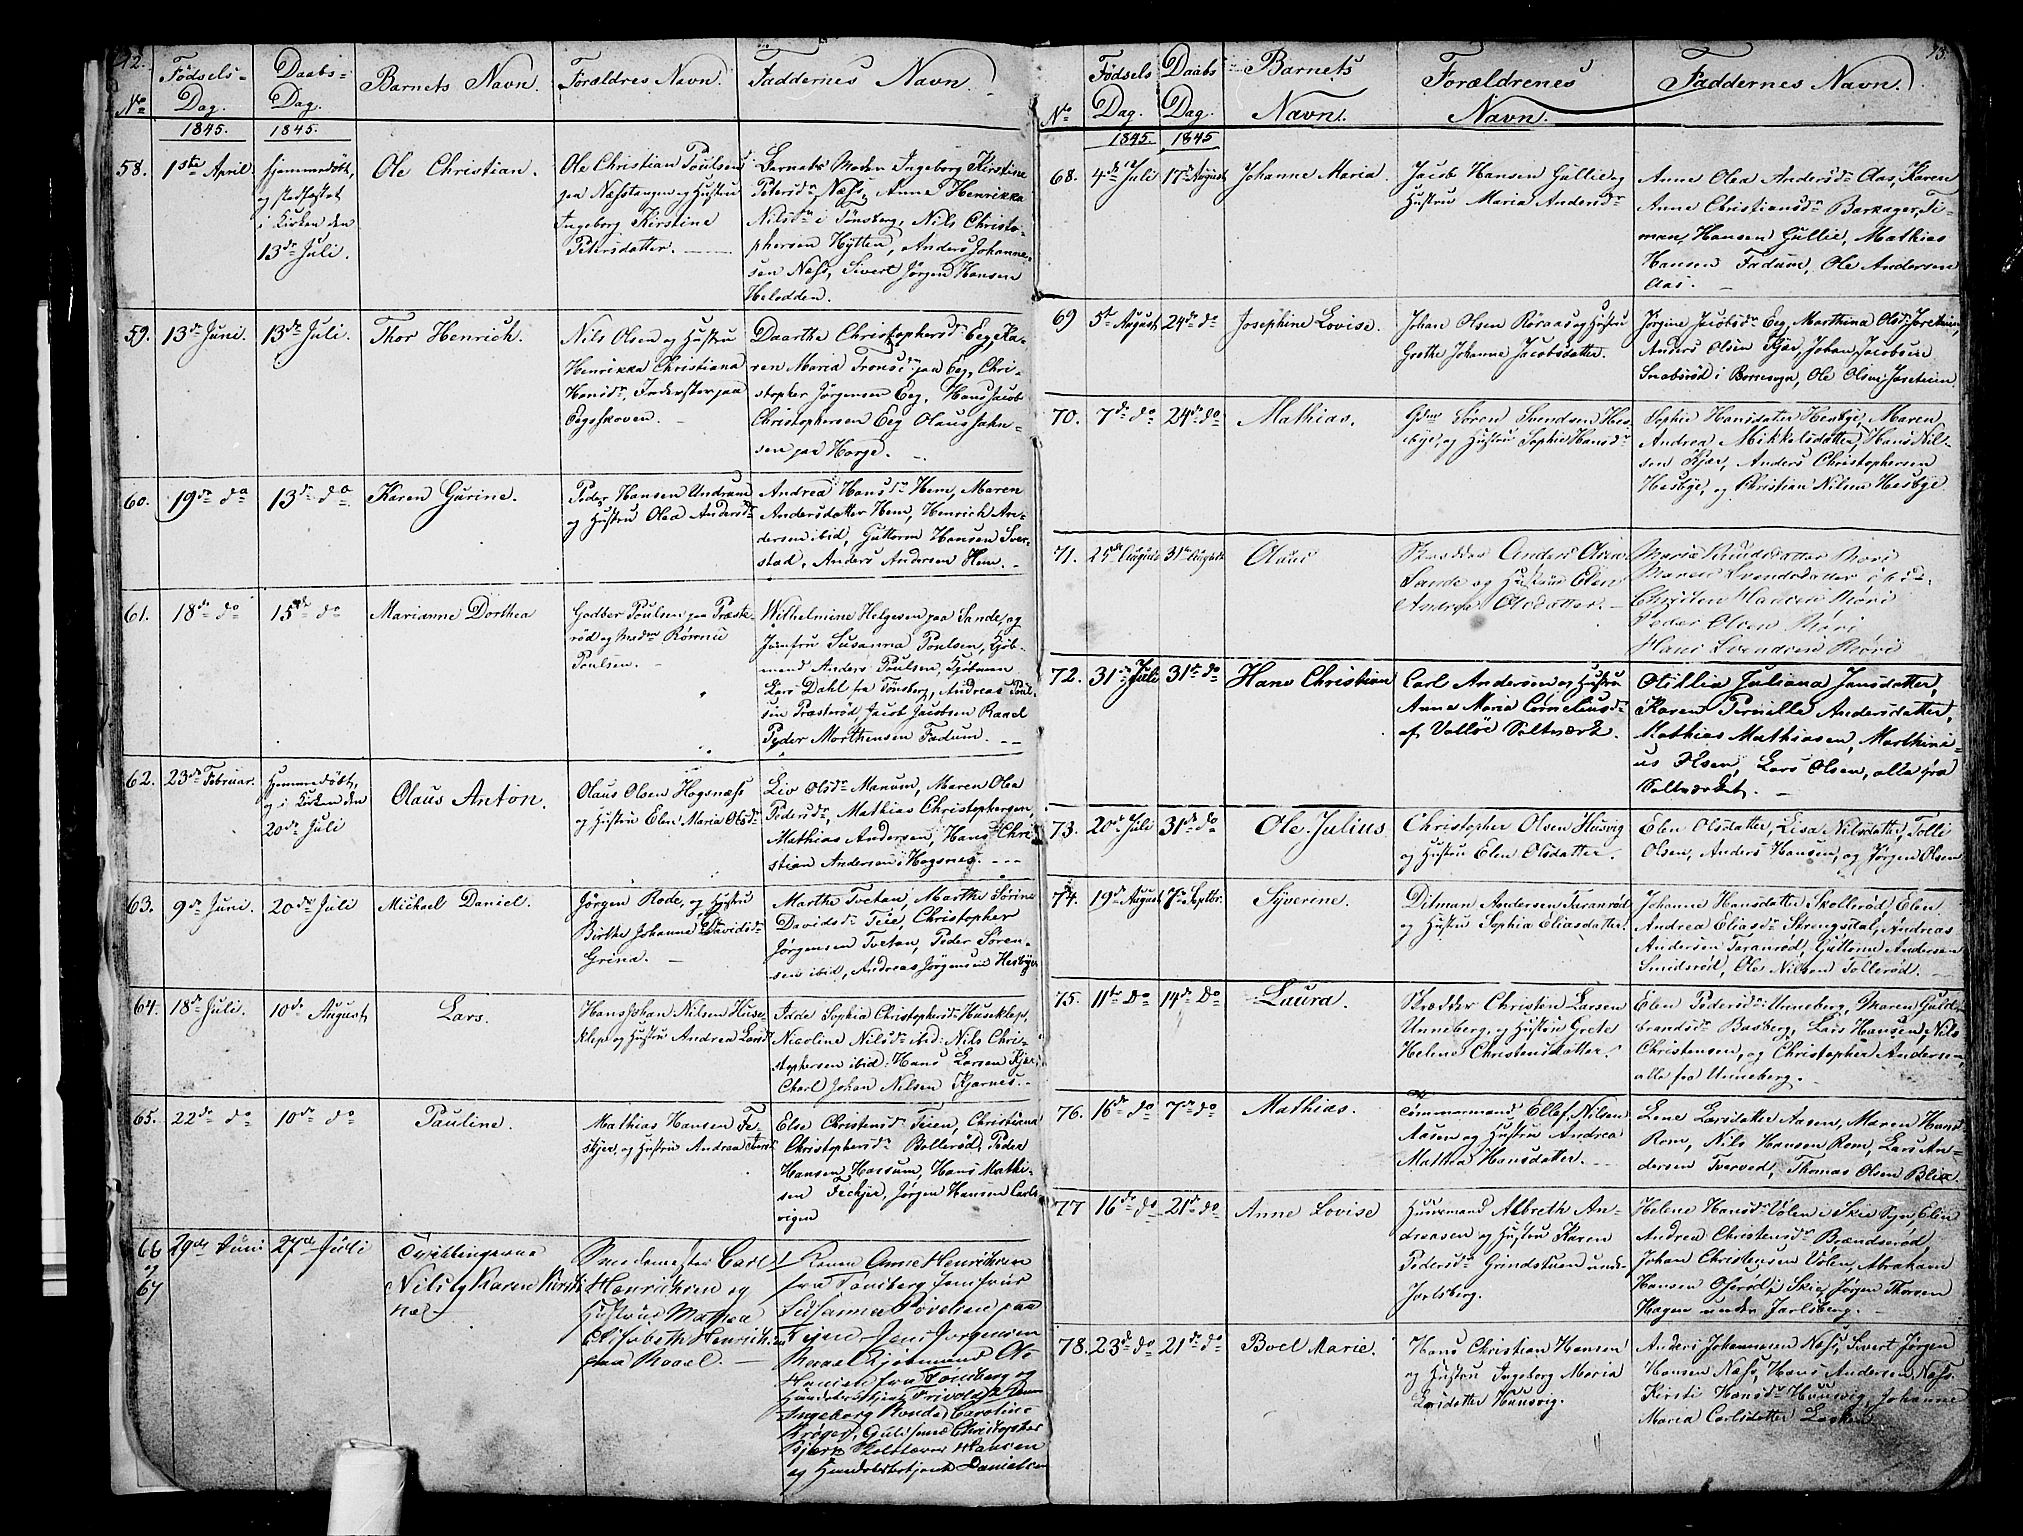 12.
No
Fødsels-
Dag.
Daabs-
Dag.
Barnets Navn.
Forældres Navn.
Faddernes Navn.
1845.
1845.
58.
1ste April
hjemmedöbt,
og stadfæstet
i Kirken den
13de Juli.
Ole Christian.
Ole Christian Poulsen
paa Næsstangen og Hustru
Ingeborg Kirstine
Petersdatter.
Barnets Moder Ingeborg Kirstine
Petersdr Næss, Anne Henrikka
Nilsdr i Tönsberg, Nils Christo-
phersen Hytten, Anders Johanne-
sen Næss, Sivert Jørgen Hansen
Helodden.
59.
13de Juni.
13de Juli.
Thor Henrich.
Nils Olsen og Hustru
Henrikka Christiana
Hansdr, Inderster paa
Eegsskoven.
Daarthe Christophersdr Eeg, Ka-
ren Maria Tronsdr paa Eeg, Chri-
stopher Jørgensen Eeg, Hans Jacob
Christophersen Eeg Olaus Jahn-
sen paa Horge.
60.
19de do
13de do
Karen Gurine.
Peder Hansen Undrum
og Hustru Olea Andersdr
Andrea Hansdr Hem, Maren
Andersdatter Hem, Henrich An-
dersen ibid, Guttorm Hansen Sver-
stad, Anders Andersen Hem.
61.
18de do
15de do
Marianne Dorthea
Godber Poulsen paa Præste-
röd og Madm
Poulsen.
Wilhelmine Helgesen paa Sande, og
Jomfru Susanna Poulsen, Kjöb-
mend Anders Poulsen, Kjöbmn
Lars Dahl fra Tönsberg, Andreas Poul-
sen Præsteröd, Jacob Jacobsen Raael
Peder Morthensen Fadum.
62.
23de Februar.
Hjemmedöbt,
og i Kirken den
20de Juli
Olaus Anton.
Olaus Olsen Hogsnæss
og Hustru Elen Maria Olsdr
Liv Olsdr Manum, Maren Olea
Pedersdr, Mathias Christophersen,
Mathias Andersen, Hans Chri-
stian Andersen i Hogsnes.
63.
9de Juni.
20de Juli
Michael Daniel.
Jørgen Rode, og Hustru
Birthe Johanne Davidsdr
Grina.
Marthe Tvetan, Marthe Sörine
Davidsdr Teie, Christopher
Jørgensen Tvetan, Peder Sören-
sen ibid, Andreas Jørgensen Hesbye
64.
18de Juli.
10de August
Lars.
Hans Johan Nilsen Huse-
klep og Hustru Andrea Larsdr
Idde Sophia Christophersdr Huseklep,
Nicoline Nilsdr ibid: Nils Chri-
stophersen ibid: Hans Larsen Kjær,
Charl Johan Nilsen Kjærnes.
65.
22de do
10de do
Pauline.
Mathias Hansen Fe-
skjer, og Hustru Andrea
Else Christensdr Teien, Christiana
Christophersdr Bolleröd, Peder
Hansen Hassum, Hans Mathi-
sen Feckjer, Jørgen Hansen Carls-
vigen
66
og
67
29de Juni
27de Juli
Tvillingerne
Nils og Karen Kirsti-
ne
Smedemester Carl
Henrichsen og
Hustrue Mathea
Elisabeth Henrichsen
paa Raael.
Karen Anne Henrichsen
fra Tönsberg Jomfrue
Susanna Povelsen paa
Teien Jens Jørgensen
Raael Kjöbmand
fra Tönsberg og

Ingeborg Caroline
Christopher
Hansen
og Danielsen
13.
No
Fødsels
Dag.
Daabs
Dag.
Barnets
Navn.
Forældrenes
Navn.
Faddernes Navn.
1845.
1845
68.
4de Juli
17de August
Johanne Maria.
Jacob Hansen Gullie og
Hustru Maria Andersdr
Anne Olea Andersdr Aas, Karen
Anne Christiansdr Barkager, Ti-
man Hansen Gullie, Mathias
Hansen Fadum, Ole Andersen
Aas.
69
5te August
24de do
Josephine Lovise.
Johan Olsen Röraas og Hustru
Grethe Johanne Jacobsdatter.
Jørgine Jacobsdr Eeg, Marthina Olsdr Jareteien,
Anders Olsen Kjær, Johan Jacobsen
Snabsröd i Borresogn, Ole Olsen Jareteien
70.
7de do
24de do
Mathias.
Gbm Sören Svendsen Hes-
bye, og Hustru Sophie Hansdr
Sophie Hansdatter Hesbye, Maren
Andrea Mikkelsdatter, Hans Nil-
sen Kjær, Anders Christophersen
Hesbye, og Christian Nilsen Hesbye
71.
25de August
31te August
Olaus
Skrædder Anders Olsen
Sande og Hustru Elen
Andrea Olsdatter.
Maria Knudsdatter Röri
Maren Svendsdatter ibid.
Christen Hansen Röri
Peder Olsen Röri
Hans Svendsen Röri
72.
31te Juli
31te do
Hans Christian
Carl Andersen og Hustru
Anne Maria Corneliusdr
af Vallöe Saltværk.
Otillia Juliana Jansdatter,
Karen Pernille Andersdatter,
Mathias Mathiasen, Marthini-
us Olsen, Lars Olsen, alle fra
Saltværket.
73.
20de Juli
31te do
Ole Julius
Christopher Olsen Husvig
og Hustru Elen Olsdatter.
Elen Olsdatter, Lisa Nilsdatter, Tolli
Olsen, Anders Hansen, og Jörgen Olsen
74.
19de August
7de Septbr.
Syverine.
Ditman Andersen Taranröd
og Hustru Sophia Eliasdatter.
Johanne Hansdatter Skolleröd, Elen
Andrea Eliasdr Strengsdal, Andreas
Andersen Taranröd, Guttorm Andersen
Smidsröd, Ole Nilsen Tolleröd.
75.
11te Do
14de Do
Laura.
Skrædder Christen Larsen
Unneberg, og Hustru Grete
Helene Christensdatter.
Elen Pedersdr Unneberg, Maren Guld-
brandsdr Basberg, Lars Hansen, Nils
Christensen, og Christopher Andersen,
alle fra Unneberg.
76.
16de do
7de do
Mathias.
Tömmermand Ellef Nilsen
Aasen og Hustru Andrea
Mathea Hansdatter.
Lene Larsdatter Aasen, Maren Hansdr
Rom, Nils Hansen Rom, Lars An-
dersen Tverved, Thomas Olsen Blix
77
16de do
21de do
Anne Lovise
Huusmand Albreth An-
dreasen og Hustru Karen
Pedersdr Grindstuen under
Jarlsberg.
Helene Hansdr Vølen i Skie Sogn, Elen
Andrea Christensdr Brændseröd
Johan Christensen Vølen, Abraham
Hansen i Skie, Jørgen Thorsen
Hagen under Jarlsberg.
78.
23de do
21de do
Boel Marie.
Hans Christian Hansen
og Hustru Ingeborg Maria
Larsdatter Huusvig.
Anders Johannesen Næss, Sivert Jørgen
Hansen Næss, Hans Andersen Næss
Kirsti Hansdr Huusvig, Johanne
Maria Carlsdatter